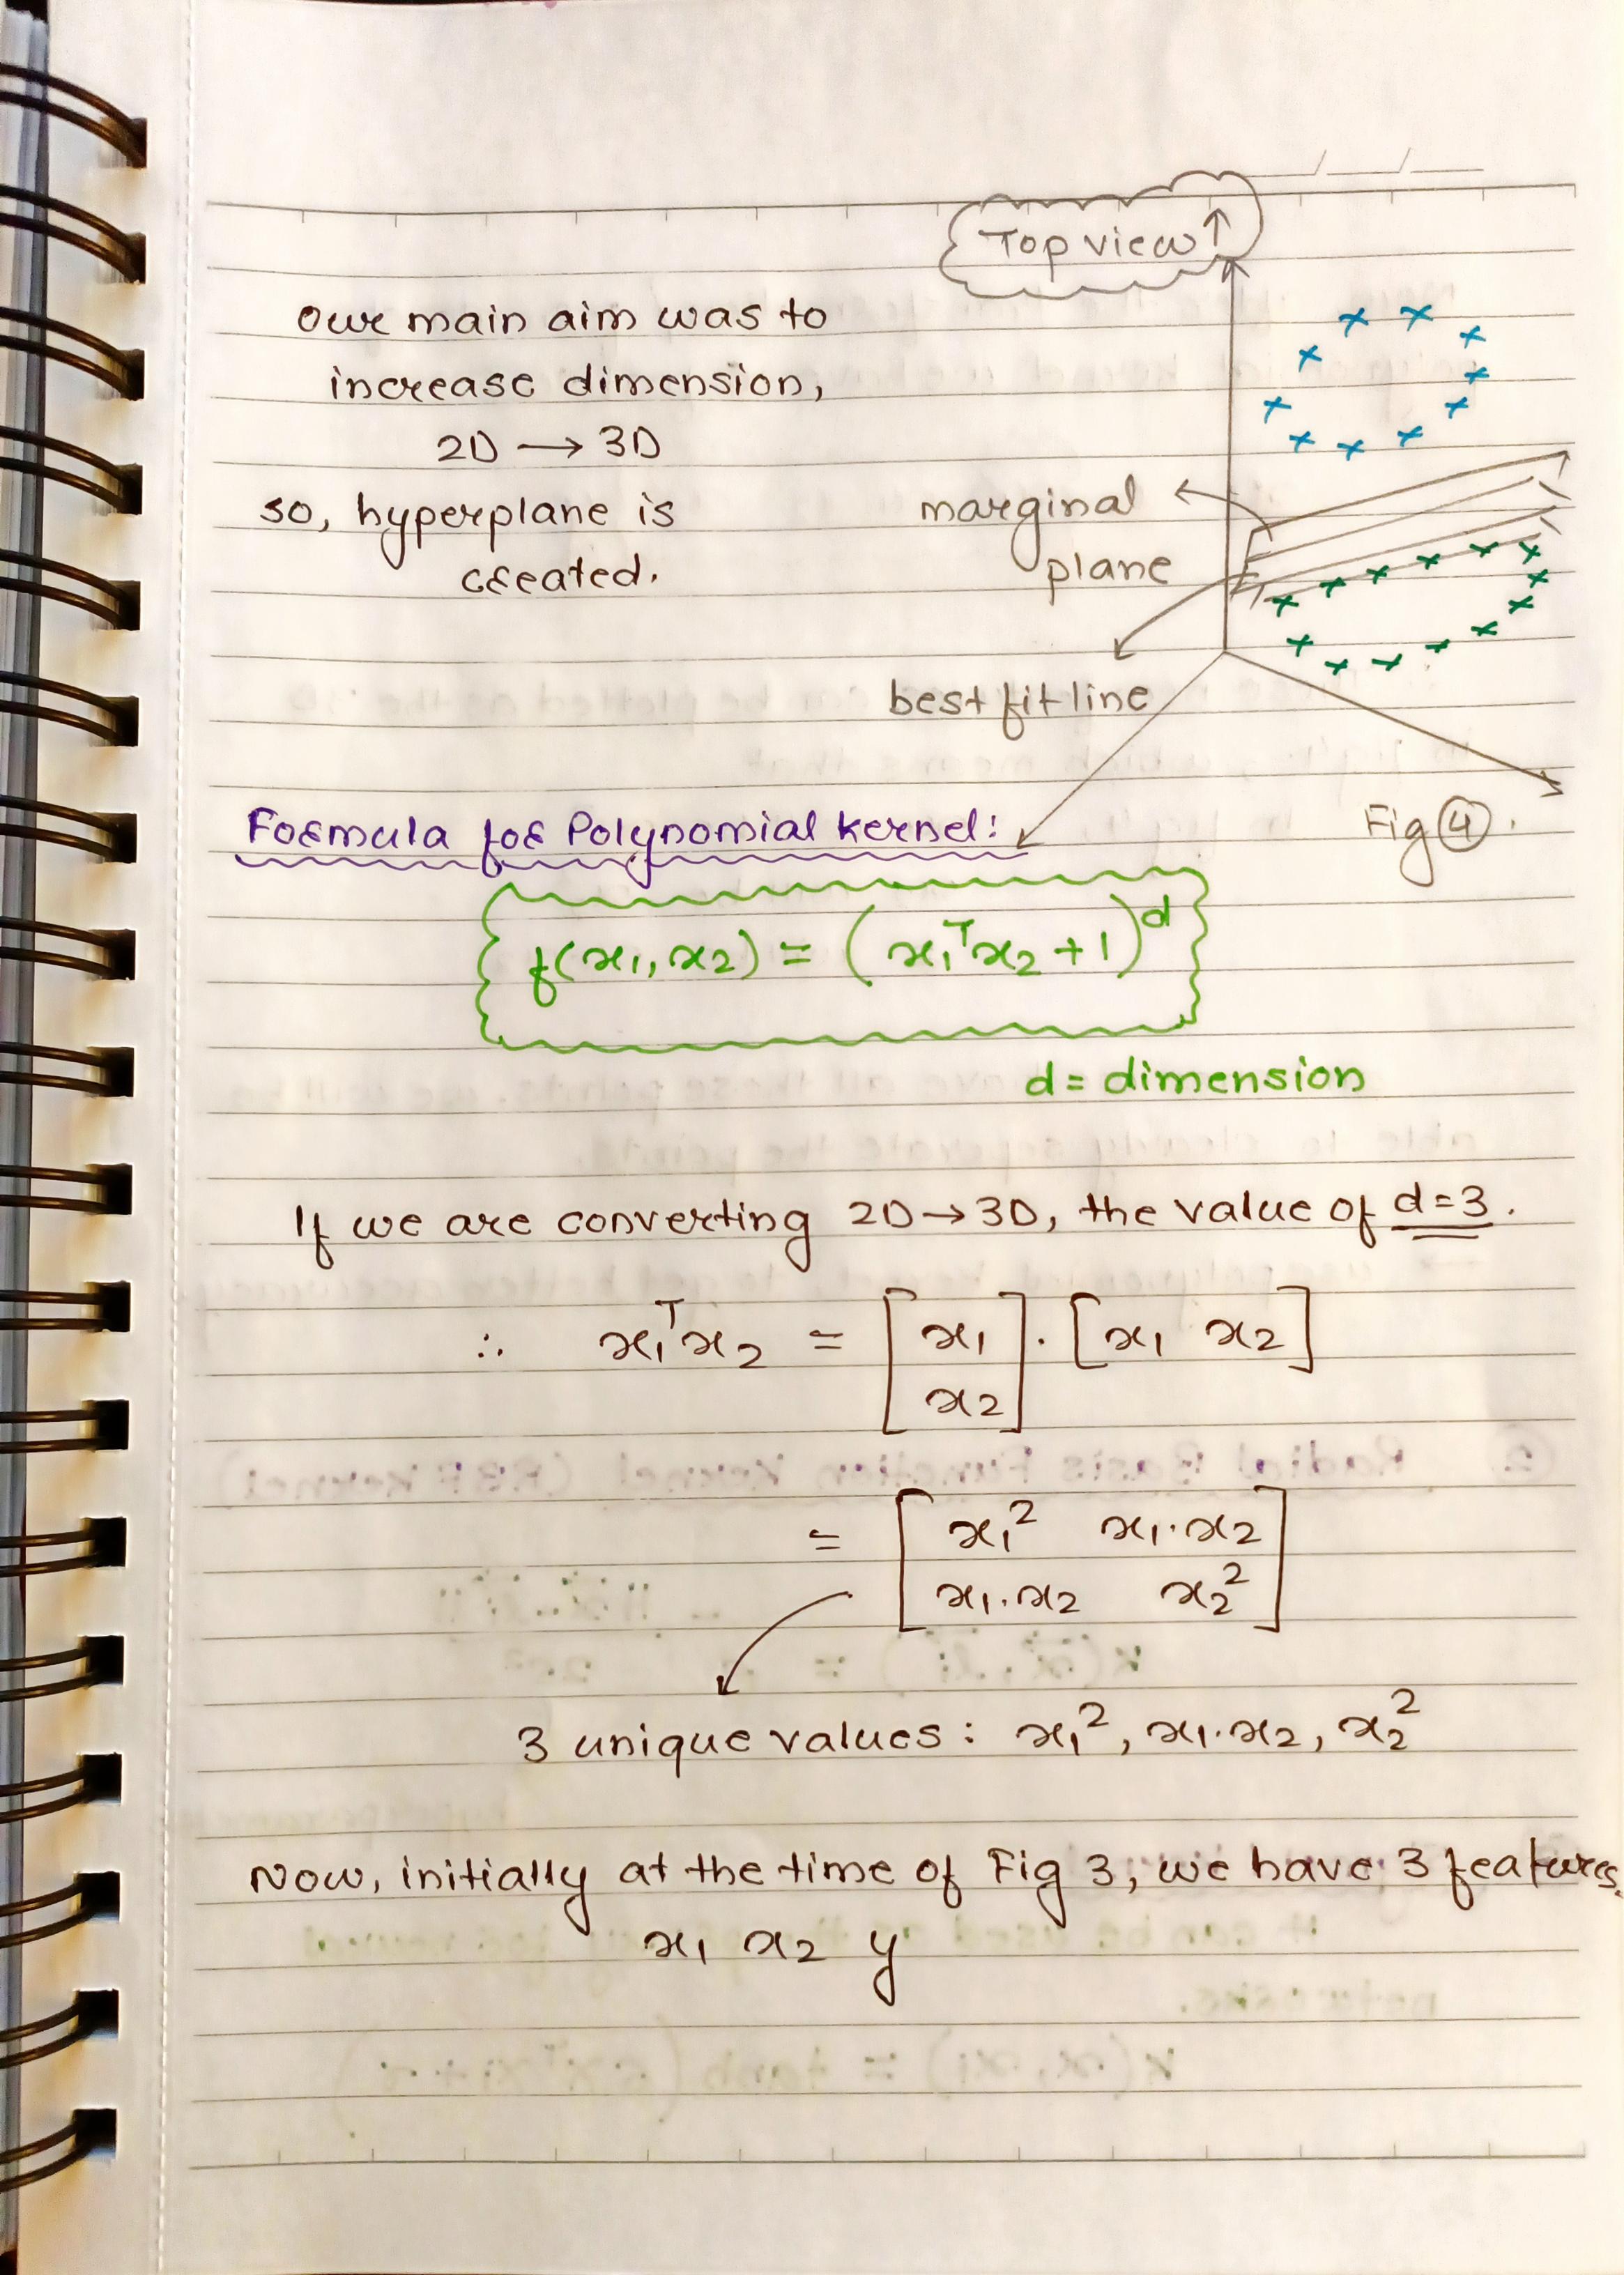 Top view ↑
Our main aim was to
increase dimension,
2D → 3D
so, hyperplane is
created.
marginal
plane
best fit line
Fig ④.
Formula for Polynomial kernel:
f(x₁, x₂) = (x₁ᵀx₂ + 1)ᵈ
d = dimension
If we are converting 2D → 3D, the value of d=3.
∴ x₁ᵀx₂ = [x₁ x₂] · [x₁ x₂]
= [x₁² x₁·x₂
x₁·x₂ x₂²]
3 unique values: x₁², x₁·x₂, x₂²
Now, initially at the time of Fig 3, we have 3 features.
x₁ x₂ y